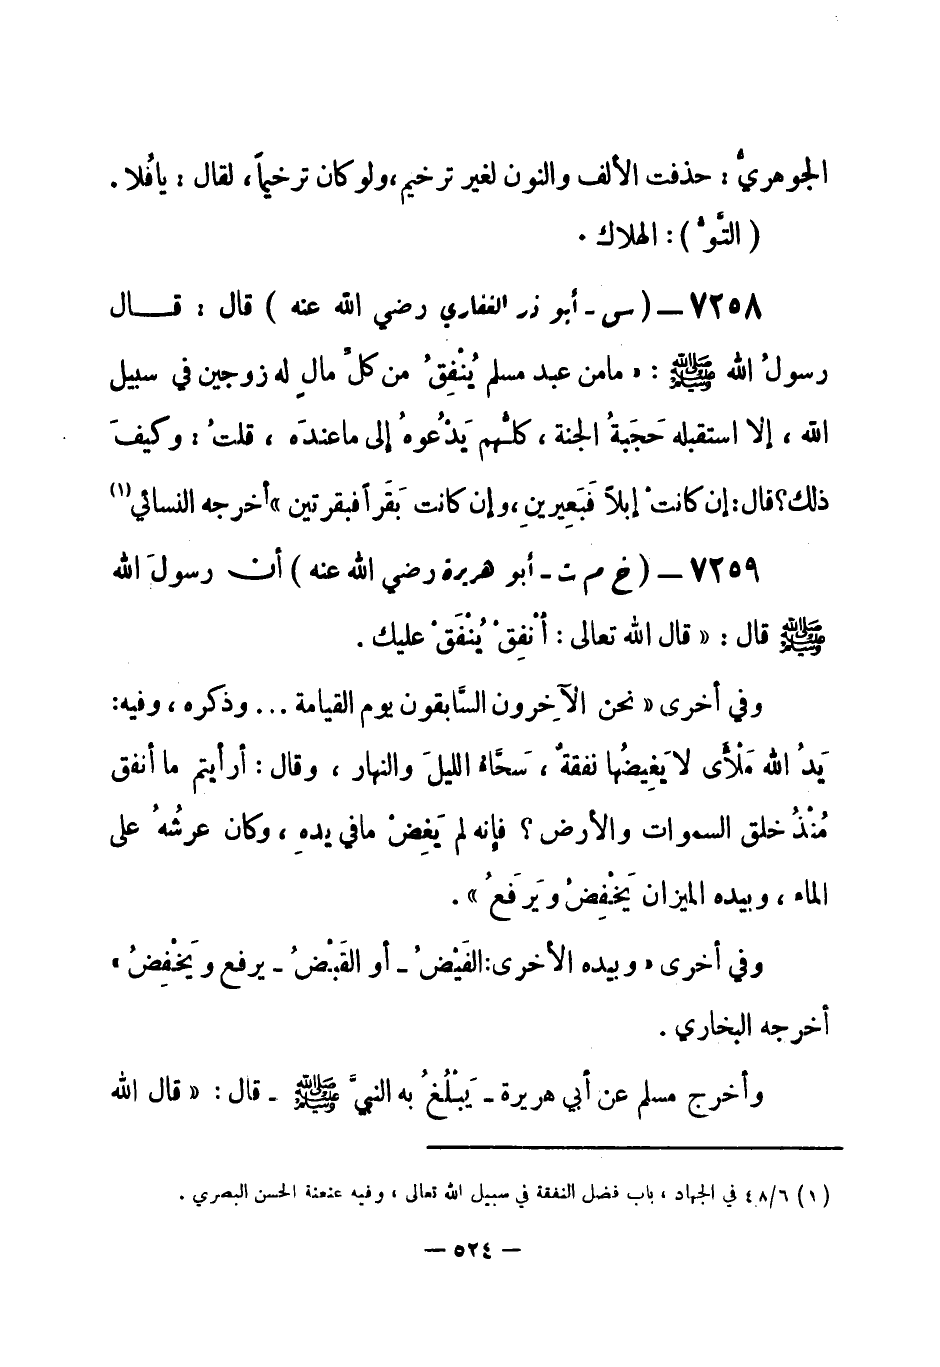 الجوهريُّ : حذفت الألف والنون لغير ترخيم،ولو كان ترخيماً، لقال : يافُلا .
( التَّوُّ ) : الهلاك .
٧٢٥٨ – ( س - أبو ذر الغفاري رضي الله عنه ) قال : قـــال
رسولُ الله ﷺ : « مامن عبد مسلم يُنْفِقُ من كلِّ مالٍ له زوجين في سبيل
الله ، إلا استقبله حَجَبةُ الجنة ، كلـُّهم يَدْعُوهُ إلى ماعنده ، قلتُ : وكيفَ
ذلك؟قال:إن كانتْ إبلاً فَبَعِيرينِ،وإن كانت بَقَراً فبقرتين » أخرجه النسائي (١)
٧٢٥٩ – ( خ م ت - أبو هريرة رضي الله عنه ) أن رسولَ الله
ﷺ قال : « قال الله تعالى : أَنْفِقْ يُنْفَقْ عليك .
وفي أخرى « نحن الآخِرون السَّابقون يوم القيامة ... وذكره ، وفيه:
يَدُ الله مَلْأَى لا يَغِيضُها نفقةٌ ، سَحَّاءُ الليلَ والنهار ، وقال : أرأيتم ما أنفق
مُنْذُ خلق السموات والأرض ؟ فإنه لم يَغِضْ مافي يدهِ ، وكان عرشُهُ على
الماء ، وبيده الميزان يَخْفِضُ ويَرفَعُ » .
وفي أخرى « وبيده الأخرى:الفَيْضُ - أو القَبْضُ - يرفع ويَخْفِضُ »
أخرجه البخاري .
وأخرج مسلم عن أبي هريرة - يَبْلُغُ به النبيَّ ﷺ - قال : « قال الله
(١) ٤٨/٦ في الجهاد ، باب فضل النفقة في سبيل الله تعالى ، وفيه عنعنة الحسن البصري .
– ٥٢٤ –